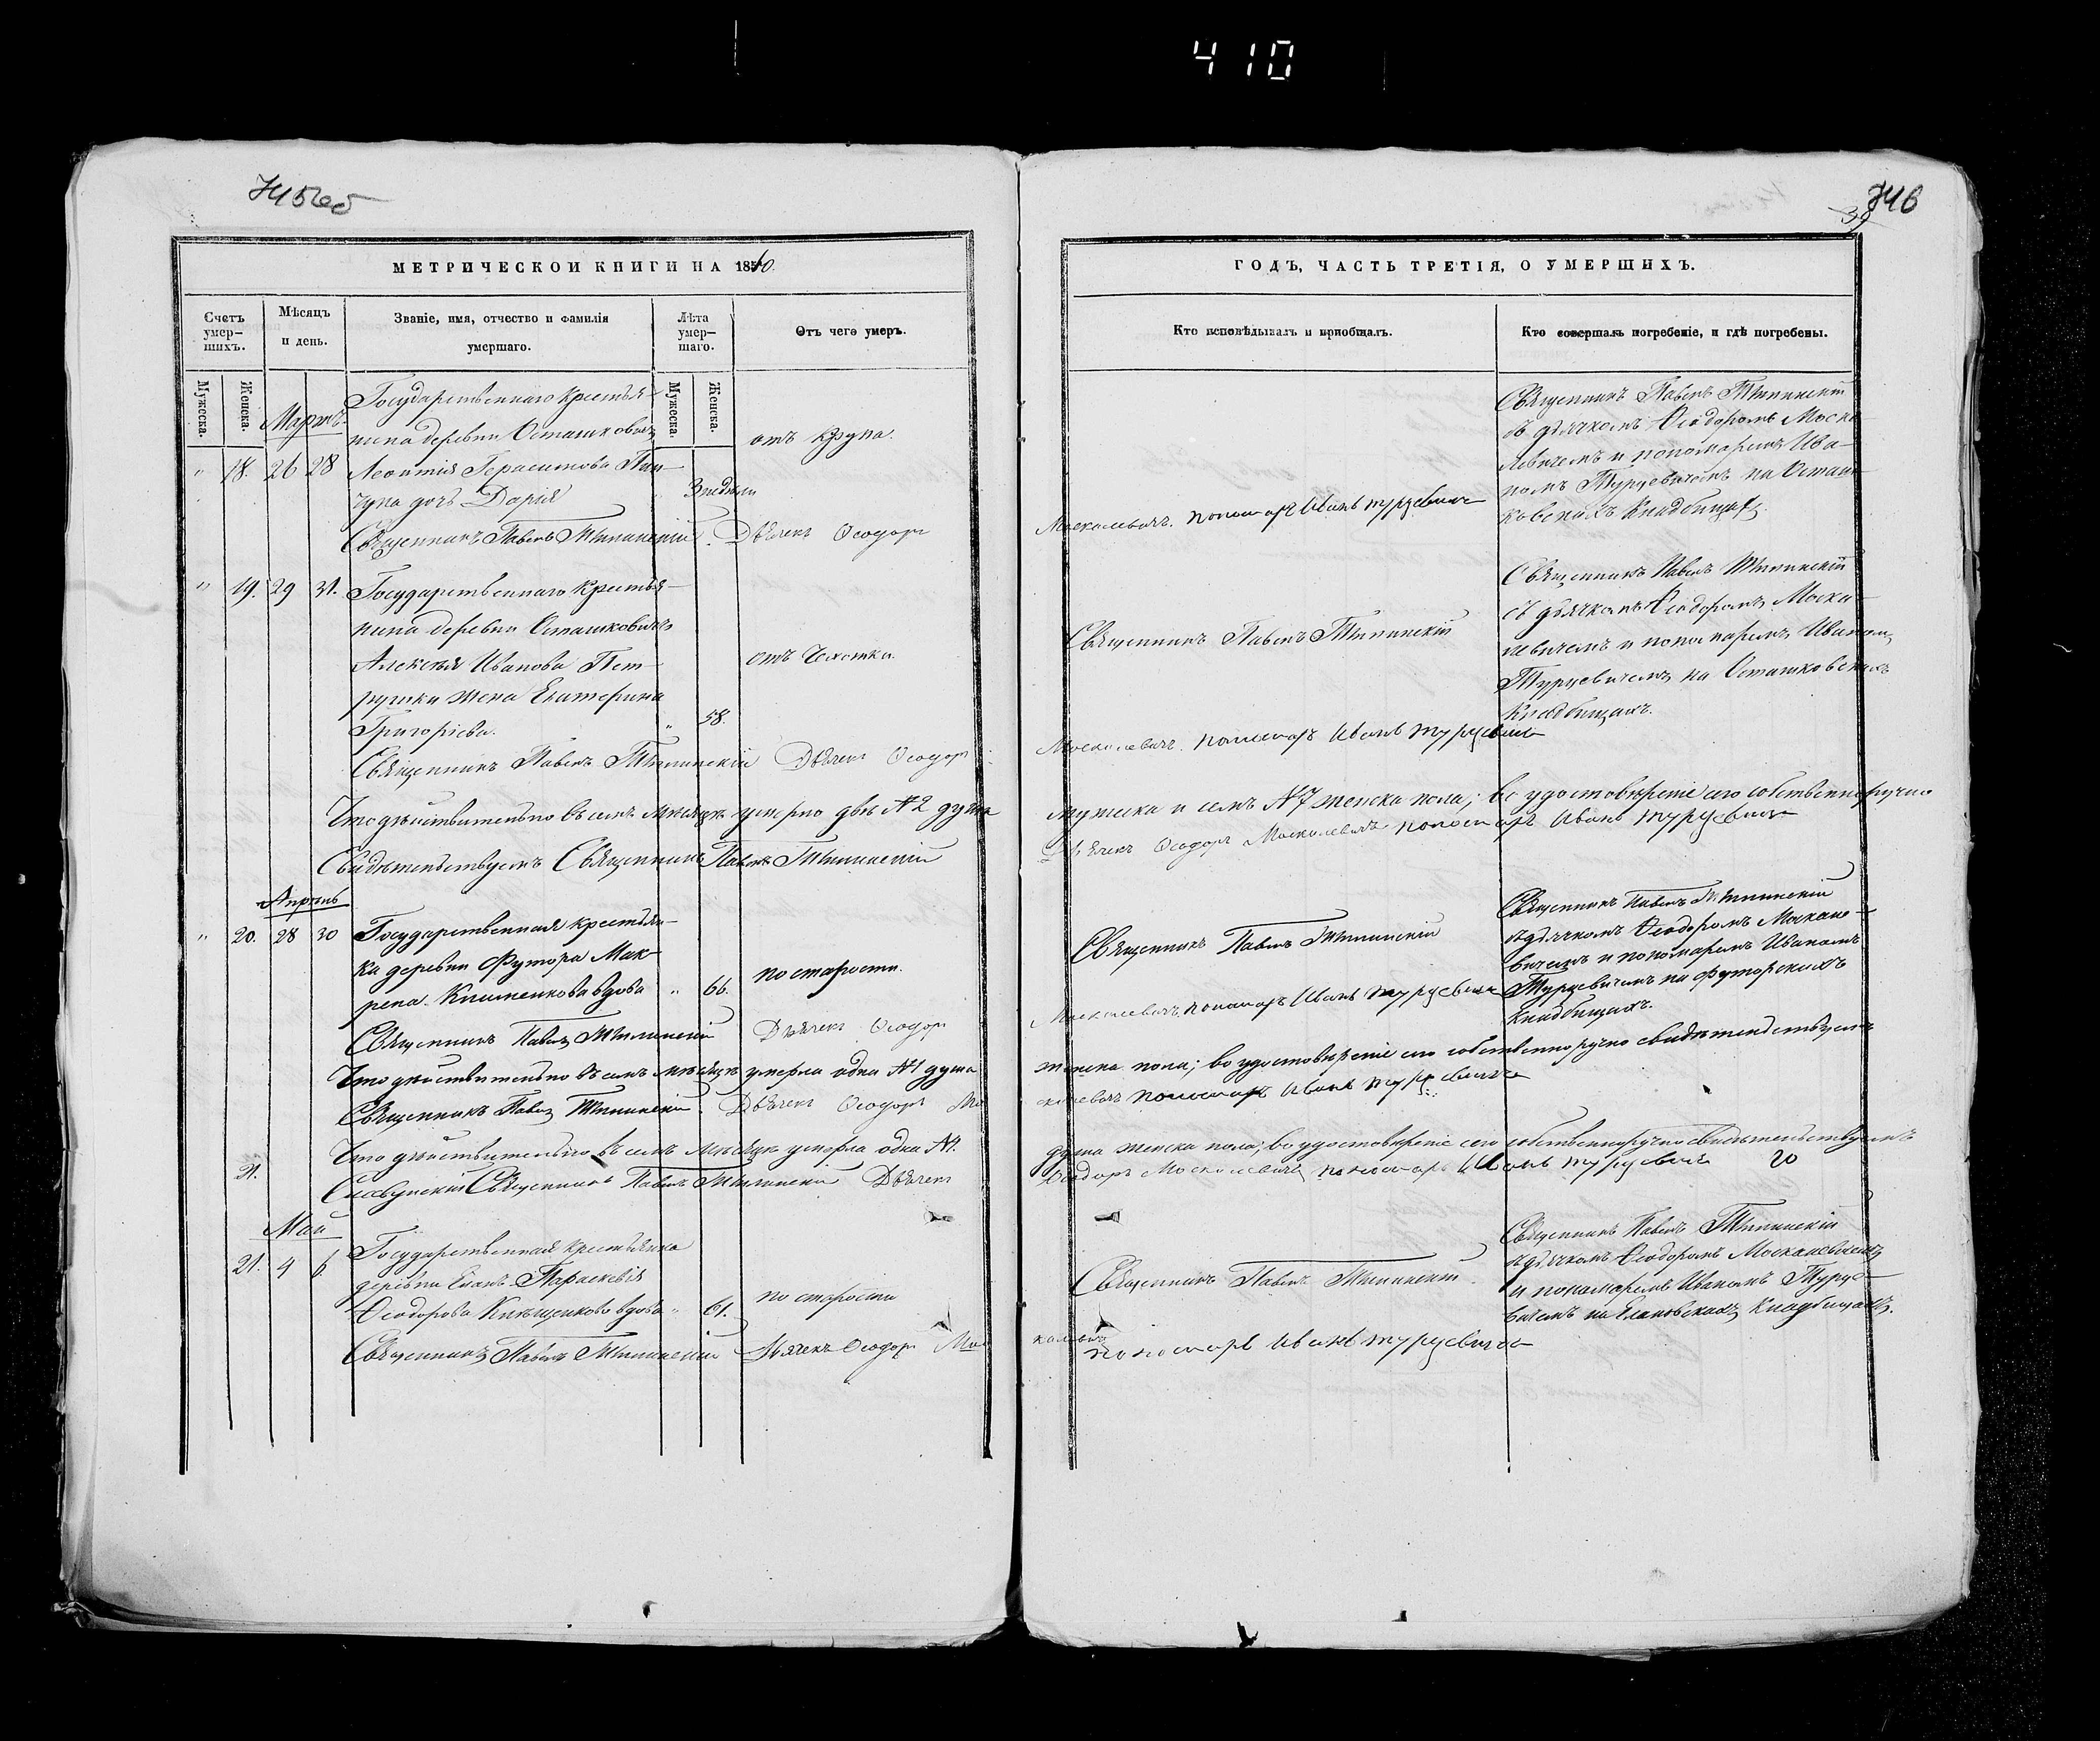 410
745об
746
39
МЕТРИЧЕСКОЙ КНИГИ НА 1860
Счетъ умер-
шихъ.
Мѣсяцъ
и день.
Званіе, имя, отчество и фамилія
умершаго.
Лѣта
умер-
шаго.
Отъ чего умеръ.
Мужеска.
Женска.
Мужеска.
Женска.
Мартъ
Государственнаго крестья-
нина деревни Осташковичъ
" 18. 26 28 Леонтія Герасимова
дочь Дарія
3 недѣли
отъ крупа.
Священникъ Павелъ Дьячекъ Ѳеодоръ
" 19. 29 31. Государственнаго крестья-
нина деревни Осташковичъ
Алексѣя Иванова Пет-
рушки жена Екатерина
Григоріева. " 58.
отъ чахотки.
Священникъ Павелъ Дьячекъ Ѳеодоръ
Что дѣйствительно въ семъ мѣсяцѣ умерло двѣ №2 душа
Свидѣтельствуемъ Священникъ Павелъ
Апрѣль
" 20. 28 30 Государственная крестьян-
ка деревни Футора Мак-
рена Клименкова вдова " 66.
по старости.
Священникъ Павелъ Дьячекъ Ѳеодоръ
Что дѣйствительно въ семъ мѣсяцѣ умерла одна №1 душа
Священникъ Павелъ Дьячекъ Ѳеодоръ Мо
Что дѣйствительно въ семъ мѣсяцѣ умерла одна №1.
21.
Священникъ Павелъ Дьячекъ
Май
21. 4 6. Государственная крестьянка
деревни Еланъ Параскевія
Ѳеодорова вдова " 61.
по старости
Священникъ Павелъ Дьячекъ Ѳеодоръ Мос
ГОДЪ, ЧАСТЬ ТРЕТІЯ, О УМЕРШИХЪ.
Кто исповѣдывалъ и пріобщалъ.
Кто совершалъ погребеніе, и гдѣ погребены.
Священникъ Павелъ
съ дьячкомъ Ѳеодоромъ Моска-
левичемъ и пономаремъ Ива-
номъ Турцевичемъ на Осташ-
ковскихъ кладбищахъ.
Москалевичъ. пономарь Иванъ Турцевичъ
Священникъ Павелъ
Священникъ Павелъ
съ дьячкомъ Ѳеодоромъ Моска-
левичемъ и пономаремъ Иваномъ
Турцевичемъ на Осташковскихъ
кладбищахъ.
Москалевичъ. пономарь Иванъ Турцевичъ
мужска и семъ №7 женска пола; во удостовѣреніе сего собственноручно
Дьячекъ Ѳеодоръ Москалевичъ пономарь Иванъ Турцевичъ
Священникъ Павелъ
Священникъ Павелъ
съ дьячкомъ Ѳеодоромъ Москале-
вичемъ и пономаремъ Иваномъ
Турцевичемъ на Футорскихъ
кладбищахъ.
Москалевичъ. пономарь Иванъ Турцевичъ
женска пола; во удостовѣреніе сего собственноручно свидѣтельствуемъ
скалевичъ пономарь Иванъ Турцевичъ
душа женска пола; во удостовѣреніе сего собственноручно свидѣтельствуемъ
Ѳеодоръ Москалевичъ пономарь Иванъ Турцевичъ 20
Священникъ Павелъ
Священникъ Павелъ
съ дьячкомъ Ѳеодоромъ Москалевичемъ
и пономаремъ Иваномъ Турце-
вичемъ на Елановскихъ кладбищахъ.
калевичъ
пономарь Иванъ Турцевичъ